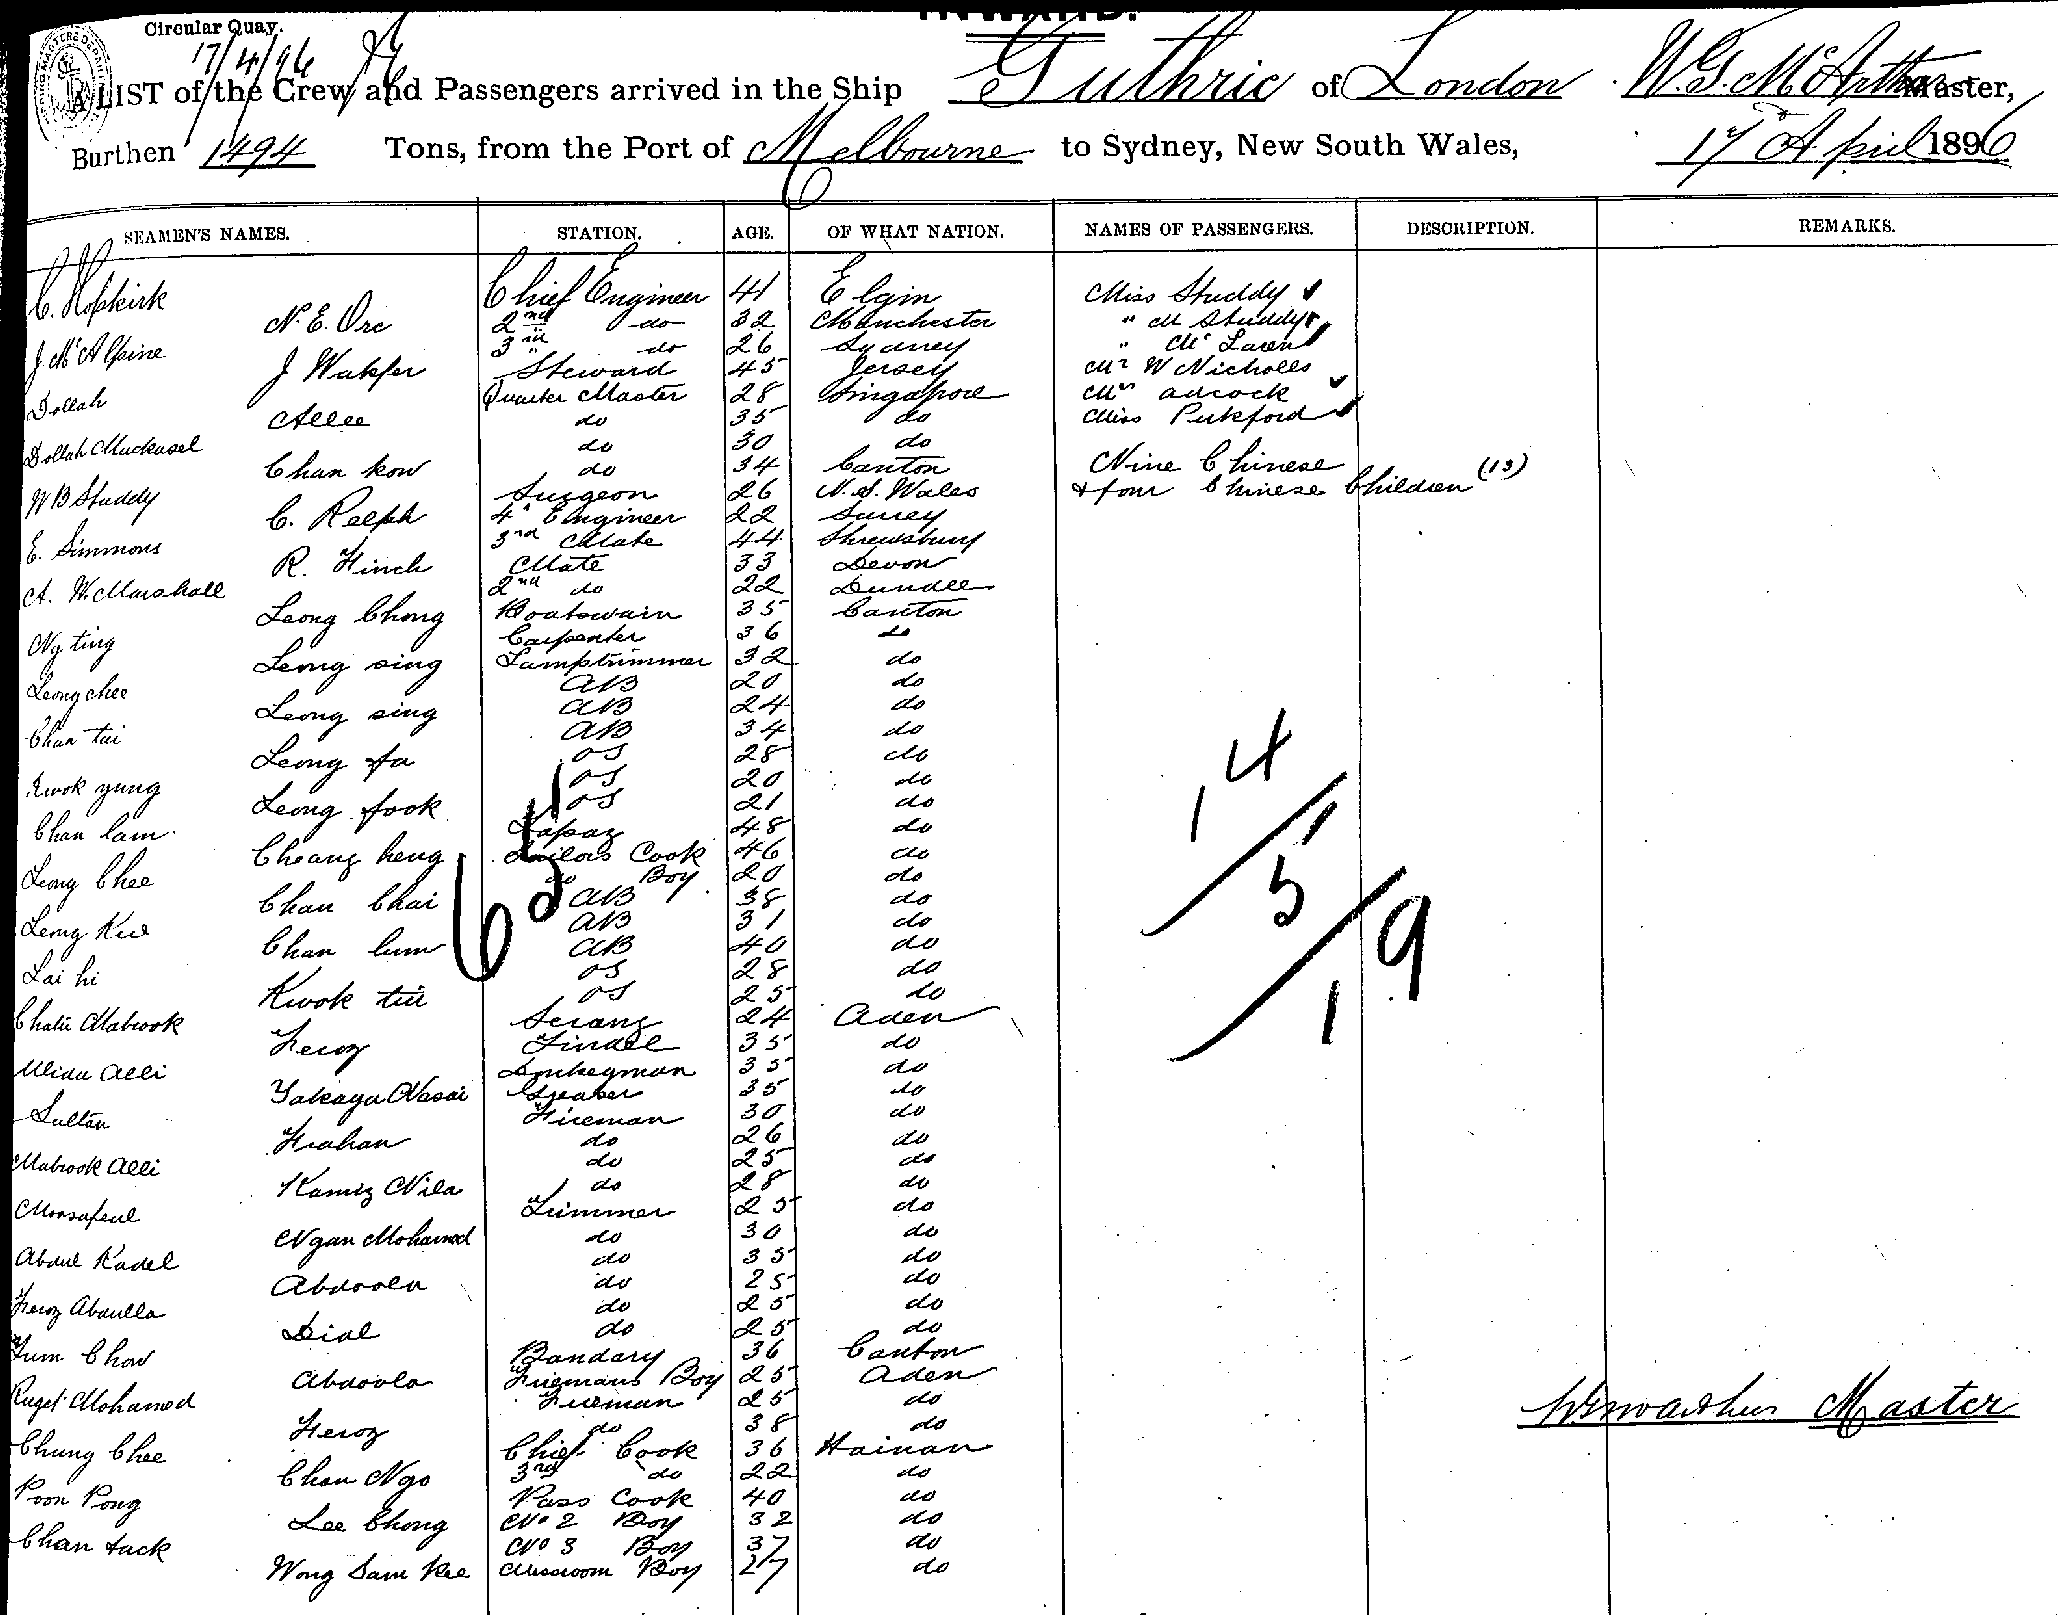 INWARD.
Circular Quay.
17/4/96
A LIST of the Crew and Passengers arrived in the Ship Guthrie of London W. G. McArthur Master,
Burthen 1494 Tons, from the Port of Melbourne to Sydney, New South Wales, 17th April 1896
SEAMEN'S NAMES. STATION. AGE. OF WHAT NATION. NAMES OF PASSENGERS. DESCRIPTION. REMARKS.
C. Hopkirk Chief Engineer 41 Elgin Miss Studdy
N. E. Orr 2nd do 32 Manchester " M Studdy
J McAlpine 3rd " do 26 Sydney " McLaren
J Wakfer Steward 45 Jersey Mr W Nicholls
Dollah Quarter Master 28 Singapore Mrs Adcock
Allee do 35 do Miss Puckford
Dollah Muckasel do 30 do
Chan kow do 34 Canton Nine Chinese
W B Studdy Surgeon 26 N. S. Wales & four Chinese Children (13)
C. Relph 4th Engineer 22 Surrey
E. Simmons 3rd Mate 44 Shrewsbury
R. Finch Mate 33 Devon
A. W. Marshall 2nd do 22 Dundee
Leong Chong Boatswain 35 Canton
Ng ting Carpenter 36 do
Leong sing Lamptrimmer 32 do
Leong chee AB 20 do
Leong sing AB 24 do
Chan tui AB 34 do
Leong fa OS 28 do
Kwok yung OS 20 do
Leong fook OS 21 do
Chan lam 48 do
Cheang heng Sailors Cook 46 do
Leong Chee do Boy 20 do
Chan Chai AB 38 do
Leong Kue AB 31 do
Chan lum AB 40 do
Lai hi OS 28 do
Kwok tui OS 25 do
Mabrook Serang 24 Aden
Feroz Tindal 35 do
Alli Donkeyman 35 do
Greaser 35 do
Sultan Fireman 30 do
Frahan do 26 do
Mabrook Alli do 25 do
Kamiz Nila do 28 do
Trimmer 25 do
Ngan Mohamed do 30 do
Abdul Kadel do 35 do
Abdoola do 25 do
Feroz Abdulla do 25 do
Dial do 25 do
Tum Chow Bandary 36 Canton
Abdoola Firemans Boy 25 Aden
Mohamed Fireman 25 do
Feroz do 38 do
Chung Chee Chief Cook 36 Hainan
Chan Ngo 3rd do 22 do
Poon Pong Pass Cook 40 do
Lee Chong No 2 Boy 32 do
Chan tack No 3 Boy 37 do
Wong Sam Kee Messroom Boy 27 do
65
14
1/5/19
1
Master